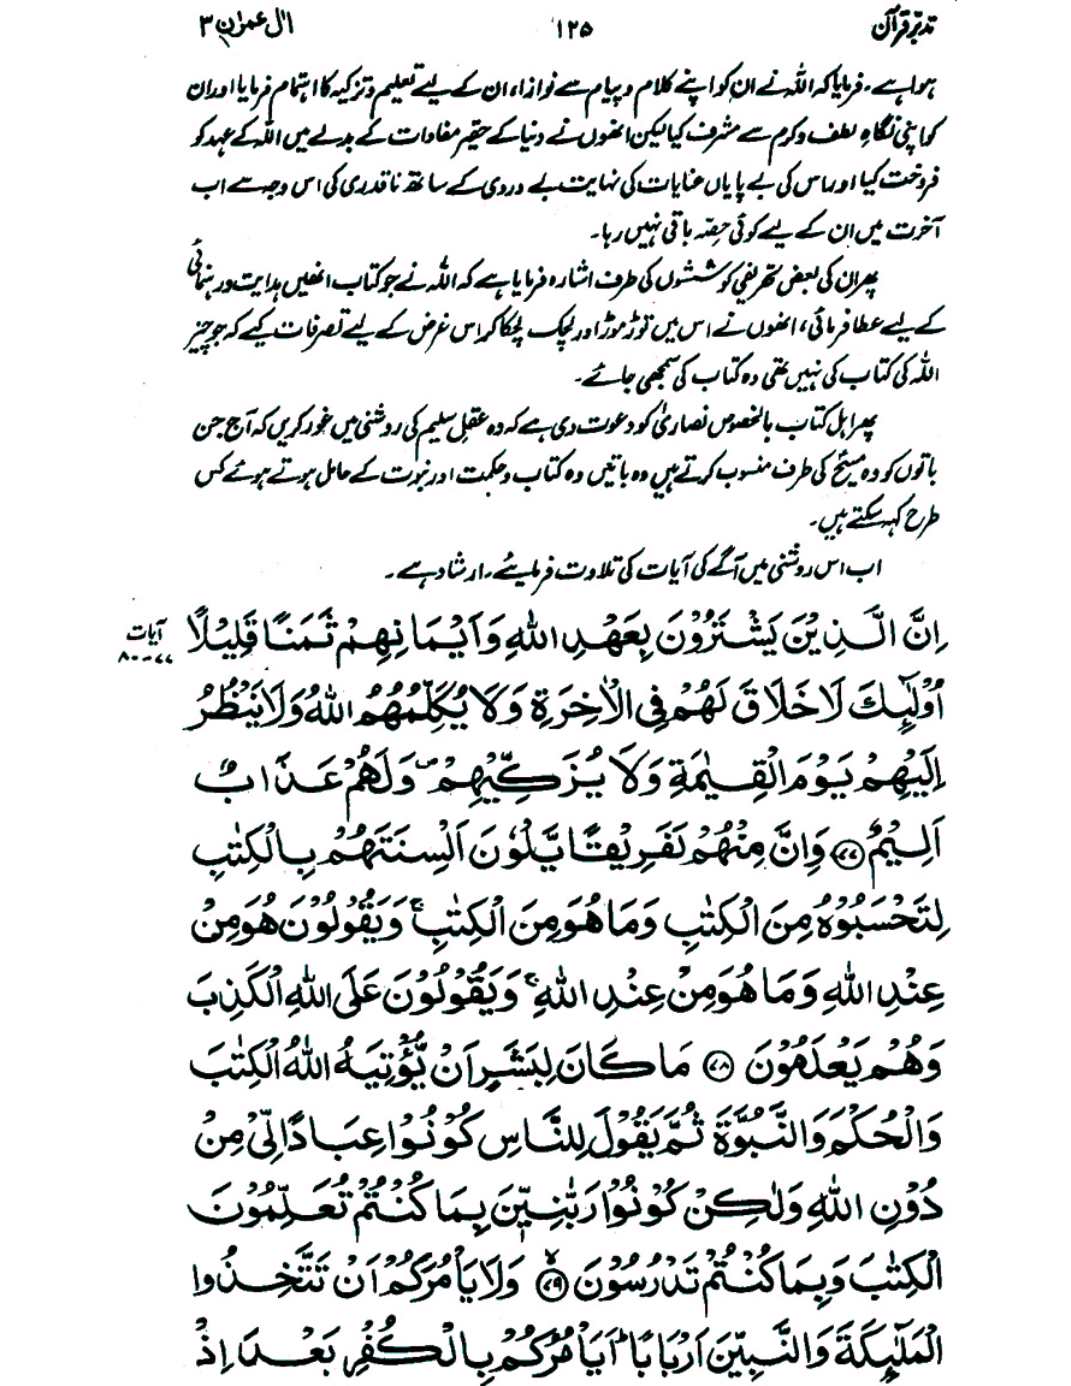 تدبرِ قرآن ۱۲۵ اٰل عمرٰن ۳
ہوا ہے۔ فرمایا کہ اللہ نے ان کو اپنے کلام و پیام سے نوازا، ان کے لیے تعلیم و تزکیہ کا اہتمام فرمایا اور ان
کو اپنی نگاہِ لطف و کرم سے مشرف کیا لیکن انھوں نے دنیا کے حقیر مفادات کے بدلے میں اللہ کے عہد کو
فروخت کیا اور اس کی بے پایاں عنایات کی نہایت بے دردی کے ساتھ ناقدری کی اس وجہ سے اب
آخرت میں ان کے لیے کوئی حصّہ باقی نہیں رہا۔
پھر ان کی بعض تحریفی کوششوں کی طرف اشارہ فرمایا ہے کہ اللہ نے جو کتاب انھیں ہدایت و رہنمائی
کے لیے عطا فرمائی، انھوں نے اس میں توڑ موڑ اور لچک لچکا کر اس غرض کے لیے تصرفات کیے کہ جو چیز
اللہ کی کتاب کی نہیں تھی وہ کتاب کی سمجھی جائے۔
پھر اہل کتاب بالخصوص نصاریٰ کو دعوت دی ہے کہ وہ عقلِ سلیم کی روشنی میں غور کریں کہ آج جن
باتوں کو وہ مسیحؑ کی طرف منسوب کرتے ہیں وہ باتیں وہ کتاب و حکمت اور نبوت کے حامل ہوتے ہوئے کس
طرح کہہ سکتے ہیں۔
اب اس روشنی میں آگے کی آیات کی تلاوت فرمایئے۔ ارشاد ہے۔
اِنَّ الَّذِيْنَ يَشْتَرُوْنَ بِعَهْدِ اللهِ وَاَيْمَانِهِمْ ثَمَنًا قَلِيْلًا
آیات
۷۷-۸۰
اُولٰٓئِكَ لَا خَلَاقَ لَهُمْ فِى الْاٰخِرَةِ وَلَا يُكَلِّمُهُمُ اللهُ وَلَا يَنْظُرُ
اِلَيْهِمْ يَوْمَ الْقِيٰمَةِ وَلَا يُزَكِّيْهِمْ ۖ وَلَهُمْ عَذَابٌ
اَلِيْمٌ ﴿۷۷﴾ وَاِنَّ مِنْهُمْ لَفَرِيْقًا يَّلْوٗنَ اَلْسِنَتَهُمْ بِالْكِتٰبِ
لِتَحْسَبُوْهُ مِنَ الْكِتٰبِ وَمَا هُوَ مِنَ الْكِتٰبِ ۚ وَيَقُوْلُوْنَ هُوَ مِنْ
عِنْدِ اللهِ وَمَا هُوَ مِنْ عِنْدِ اللهِ ۚ وَيَقُوْلُوْنَ عَلَى اللهِ الْكَذِبَ
وَهُمْ يَعْلَمُوْنَ ﴿۷۸﴾ مَا كَانَ لِبَشَرٍ اَنْ يُّؤْتِيَهُ اللهُ الْكِتٰبَ
وَالْحُكْمَ وَالنُّبُوَّةَ ثُمَّ يَقُوْلَ لِلنَّاسِ كُوْنُوْا عِبَادًا لِّيْ مِنْ
دُوْنِ اللهِ وَلٰكِنْ كُوْنُوْا رَبّٰنِيّٖنَ بِمَا كُنْتُمْ تُعَلِّمُوْنَ
الْكِتٰبَ وَبِمَا كُنْتُمْ تَدْرُسُوْنَ ﴿۷۹﴾ۙ وَلَا يَاْمُرَكُمْ اَنْ تَتَّخِذُوا
الْمَلٰٓئِكَةَ وَالنَّبِيّٖنَ اَرْبَابًا ؕ اَيَاْمُرُكُمْ بِالْكُفْرِ بَعْدَ اِذْ